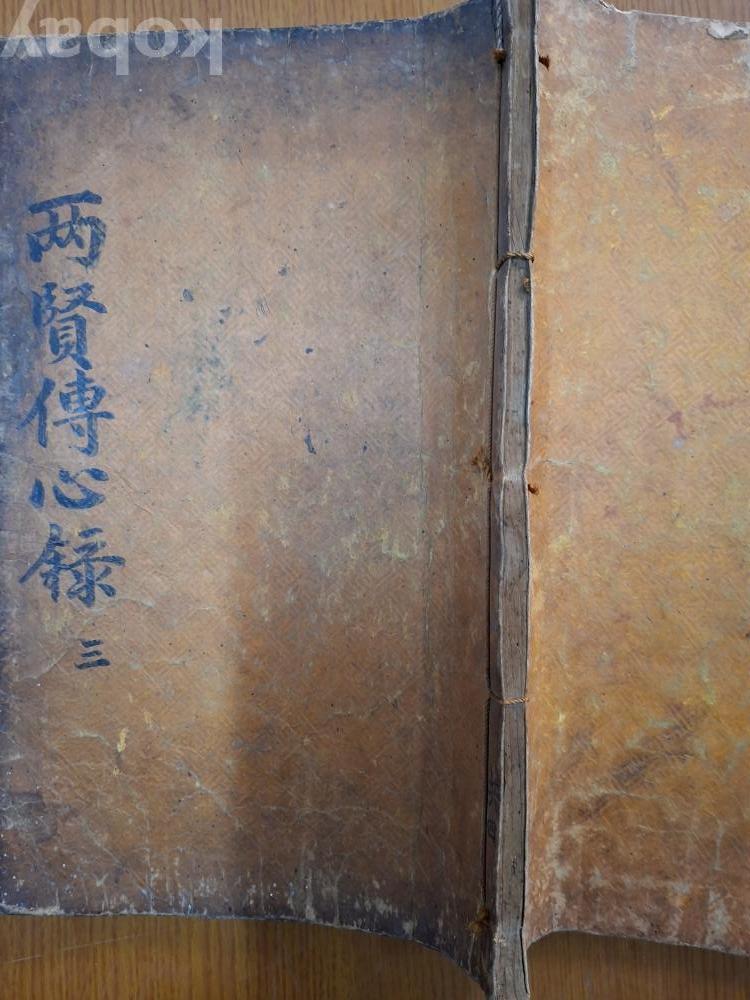 kobay
两賢傳心錄
三